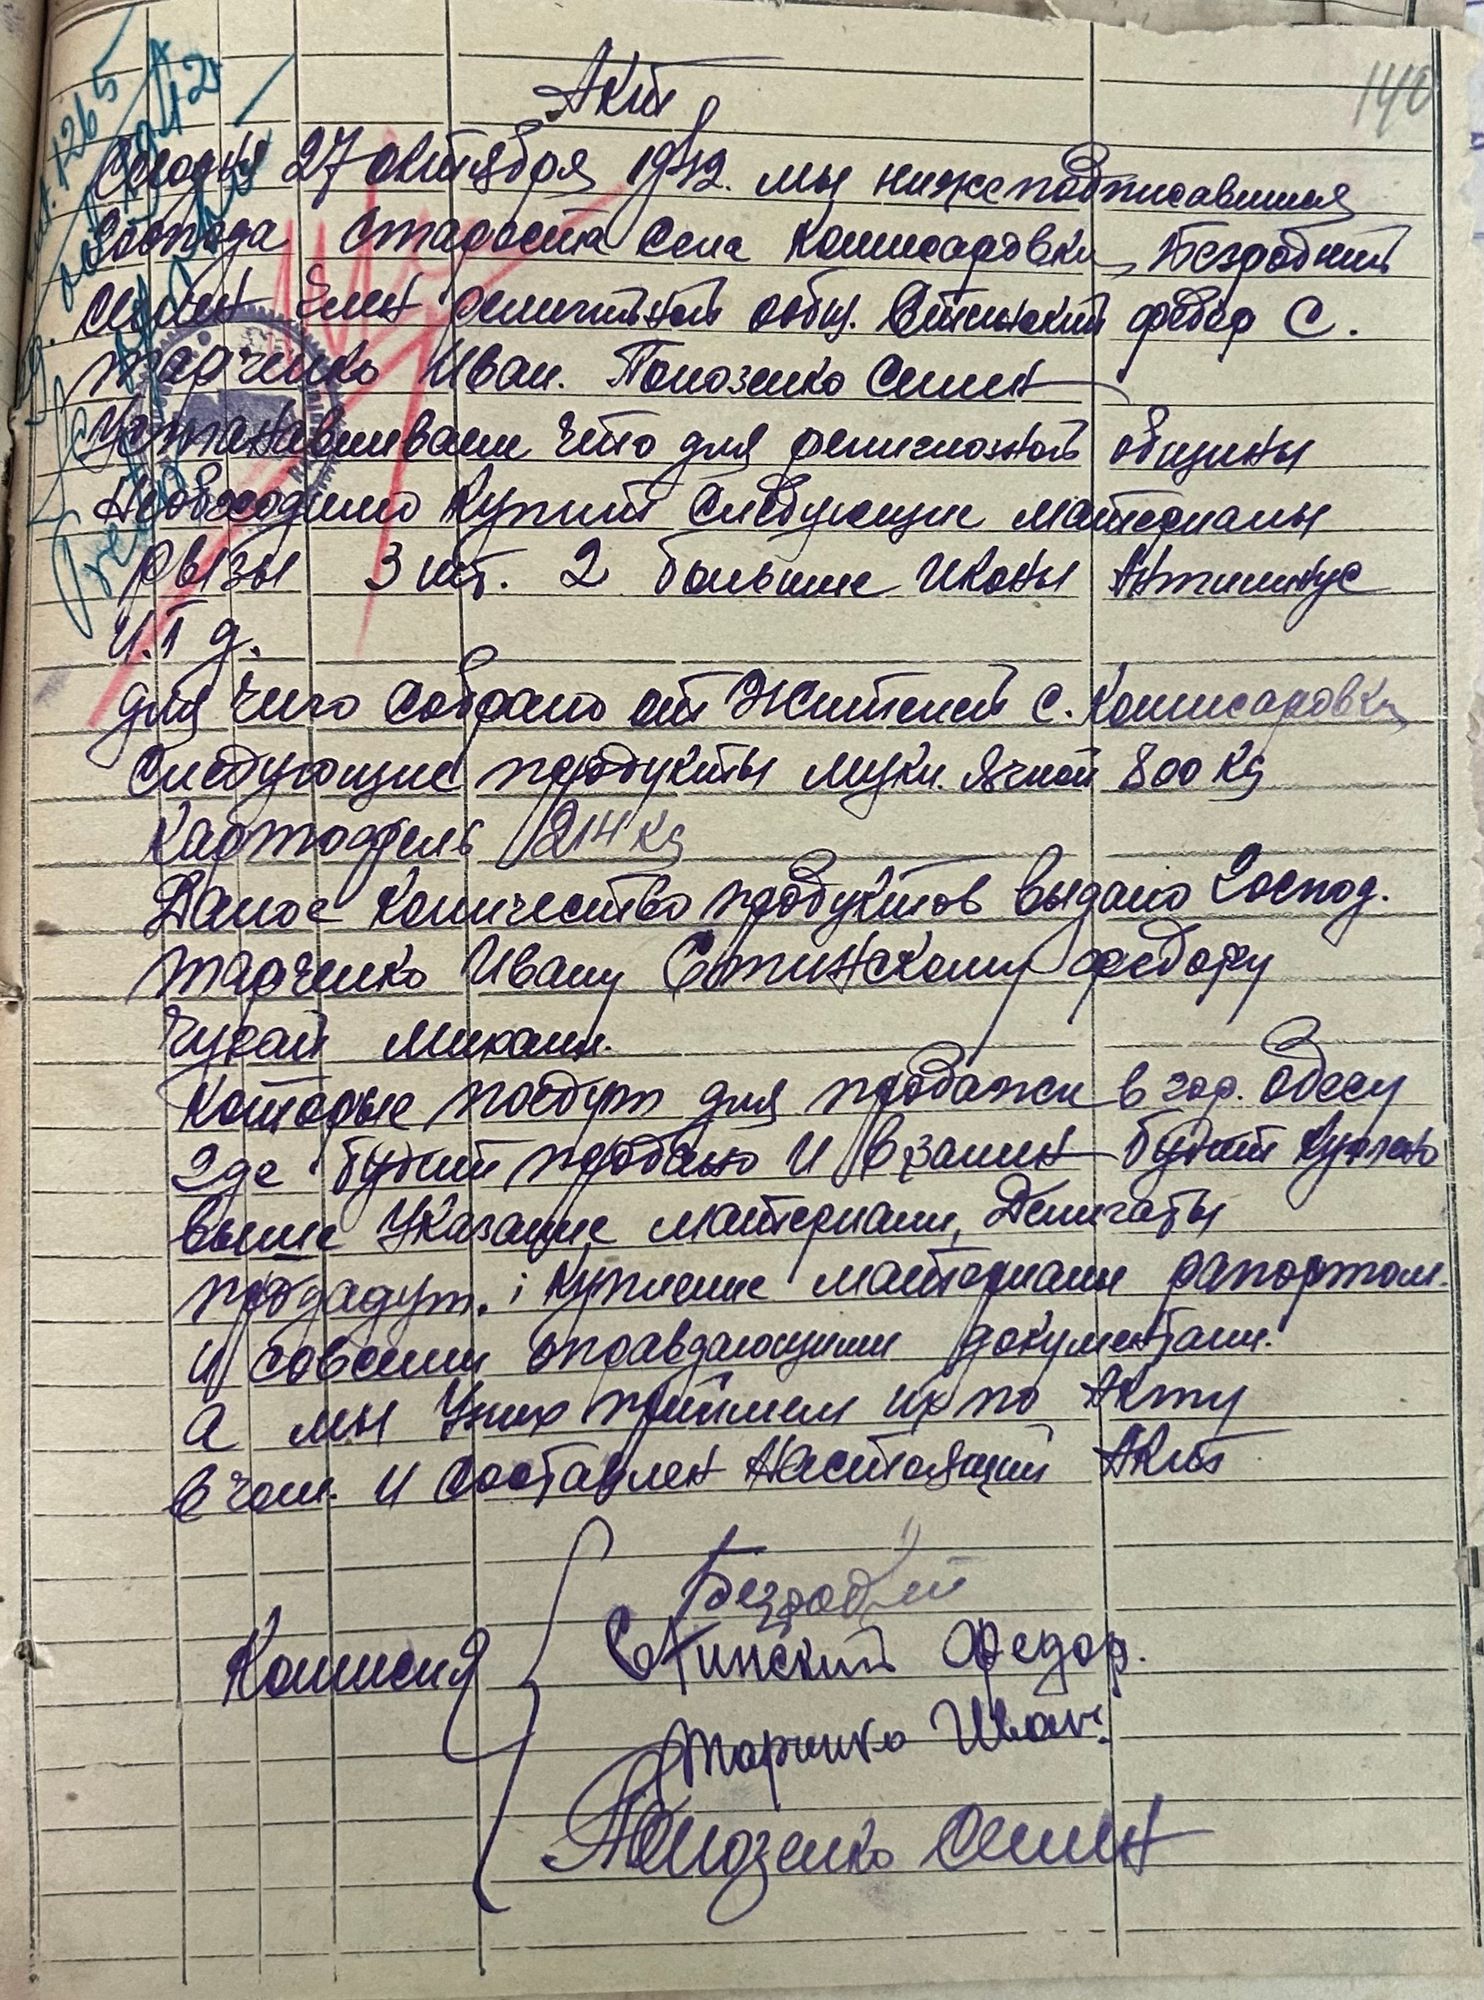 140
Акт
Сегодня 27 октября 1942. мы нижеподписавшися
Господа Староста Села Комисаровки Безродний
Семен Член религийной общ. Стинский федор С.
Тарченко Иван. Полозенко Семен
Устанавливаем что для религиозной общины
Необходимо Купит Следующие материалы
рызы 3 шт. 2 большие Иконы Антиминус
И. Т д.
для чего Собрано от Жителей С. Комисаровки
Следующие продукты муки. ячной 800 Кг
Картофель 214 Кг
Даное количество продуктов выдано Господ.
Тарченко Ивану Стинскому федору
Чухай Михаил.
Которые поедут для продажи в гор. Одесу
Где будит продано И взамин будит куплено
выше Указание материали, Делигаты
прдадут. і Купление материали рапортом.
И совсеми оправдающими документами.
А мы Уних приймем их по Акту
в чом. И Составлен Настоящий Акт
Комисия
Безродний
Стинский Федор.
Тарченко Иван.
Полозенко Семен